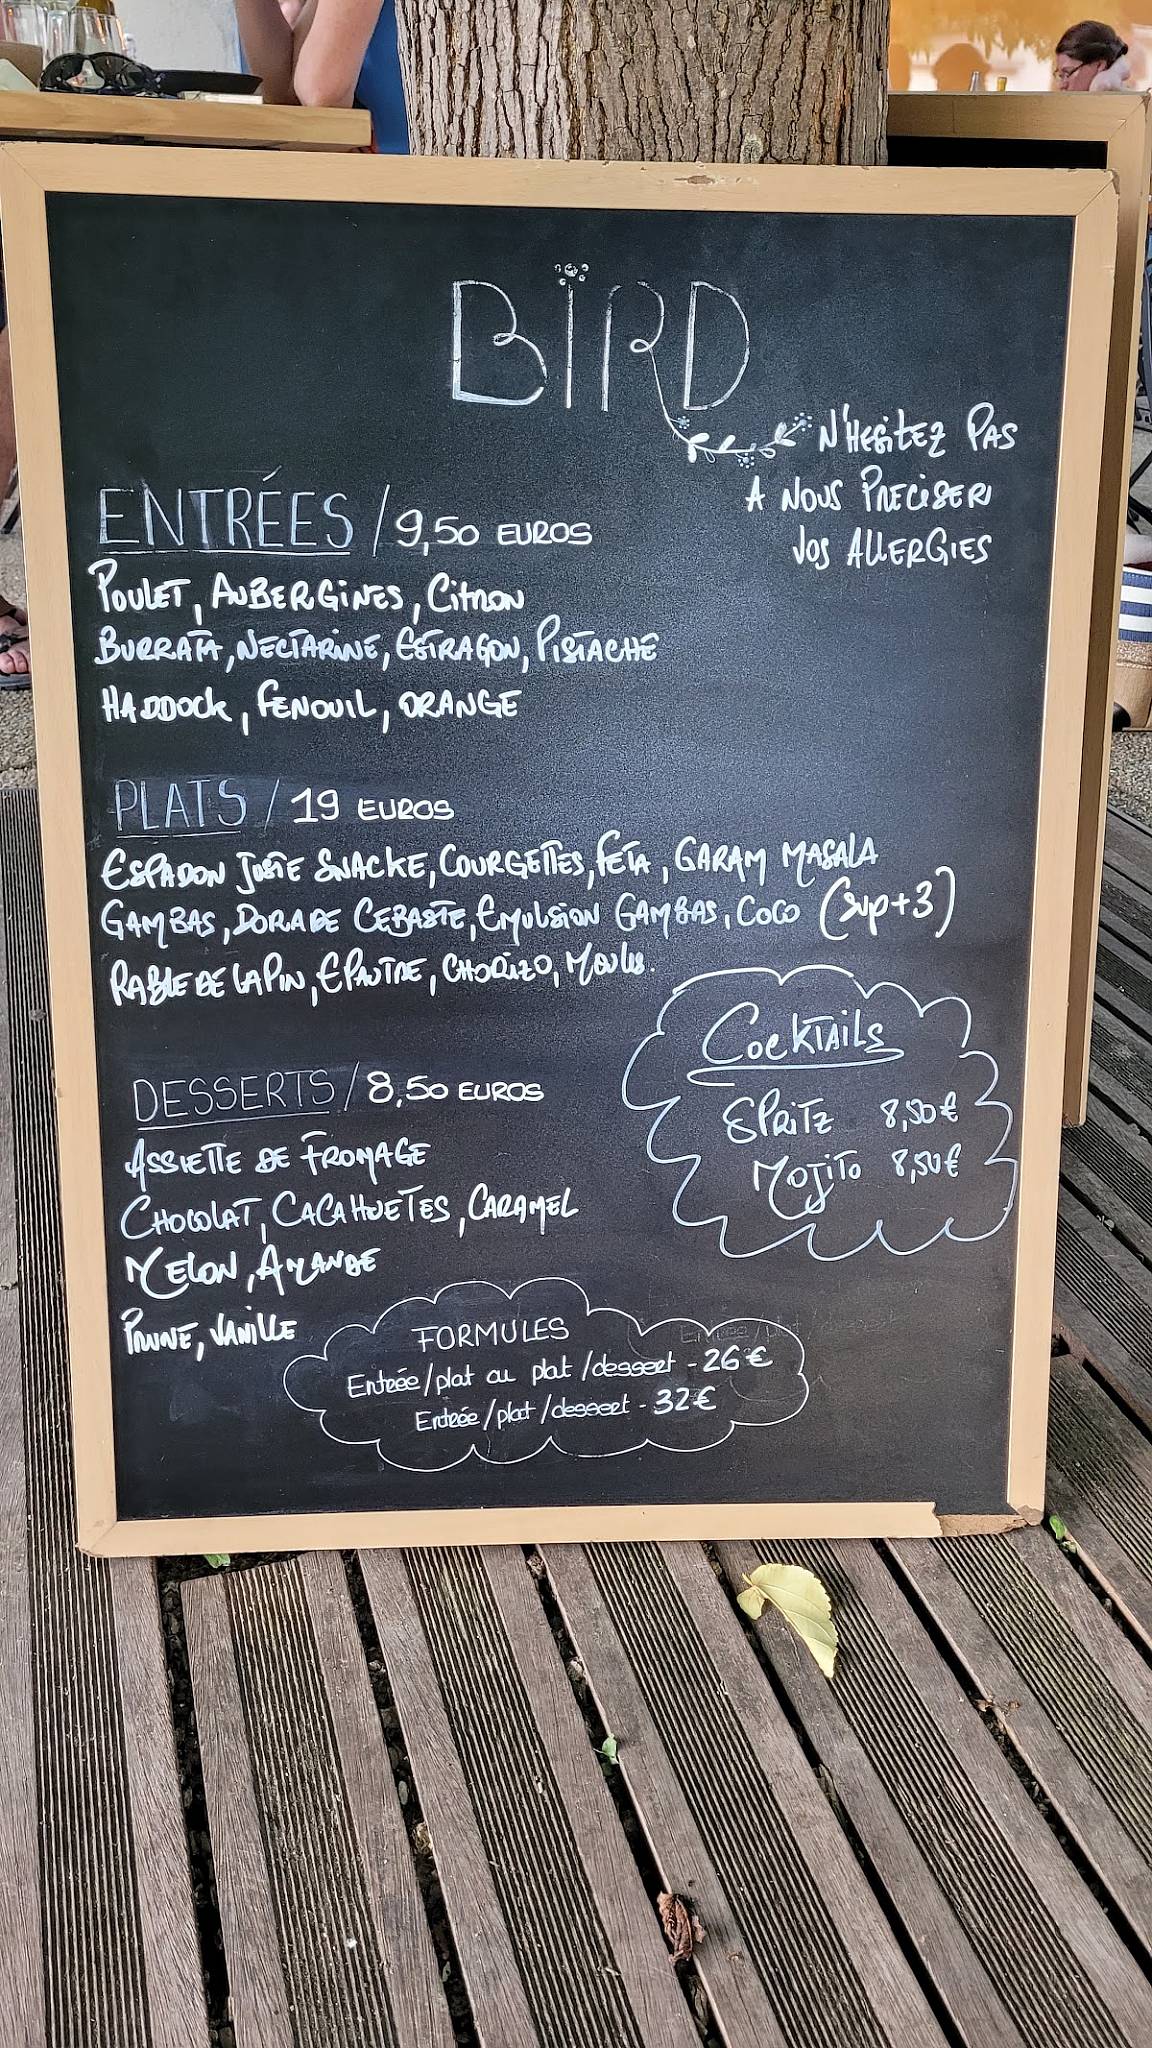 BÏRD
N'HESITEZ PAS
A NOUS PRECISER
VOS ALLERGIES
ENTRÉES / 9,50 EUROS
POULET, AUBERGINES, CITRON
BURRATA, NECTARINE, ESTRAGON, PISTACHE
HADDOCK, FENOUIL, ORANGE
PLATS / 19 EUROS
ESPADON JUSTE SNACKE, COURGETTES, FETA, GARAM MASALA
GAMBAS, DORADE CEBASTE, EMULSION GAMBAS, COCO (sup+3)
RABLE DE LAPIN, EPAUTRE, CHORIZO, MOULES.
COCKTAILS
SPRITZ 8,50€
MOJITO 8,50€
DESSERTS / 8,50 EUROS
ASSIETTE DE FROMAGE
CHOCOLAT, CACAHUETES, CARAMEL
MELON, AMANDE
PRUNE, VANILLE
FORMULES
Entrée/plat ou plat/dessert - 26€
Entrée/plat/dessert - 32€